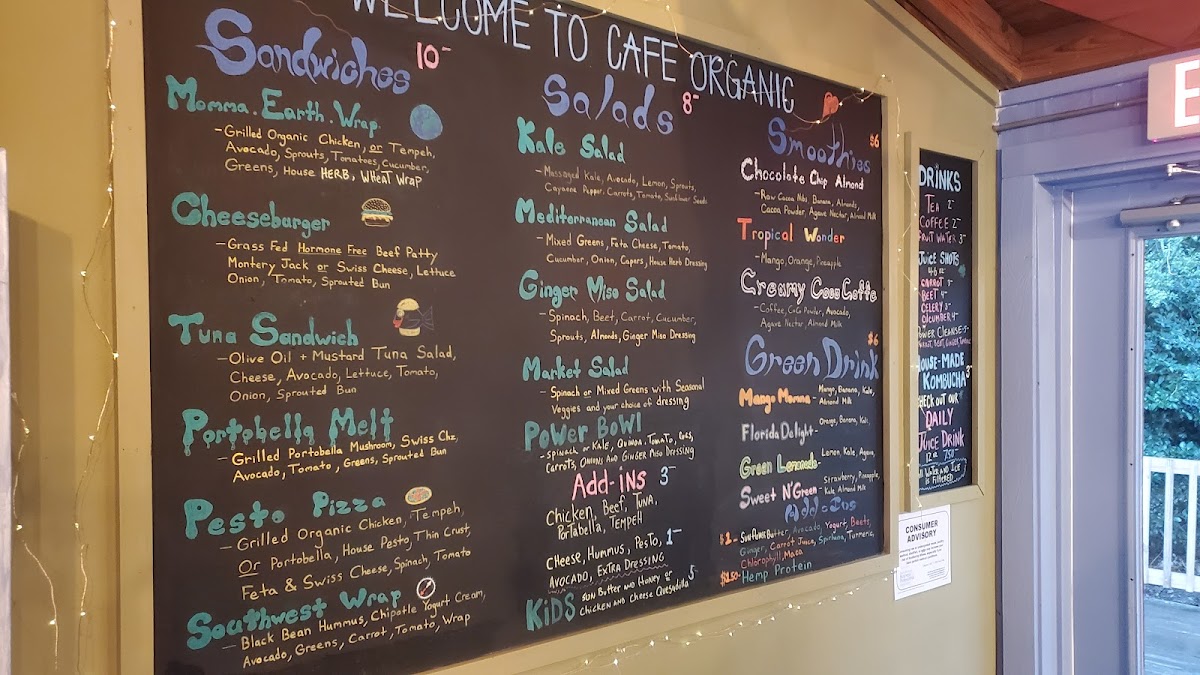 WELCOME TO CAFE ORGANIC
Sandwiches 10-
Momma.Earth.Wrap.
- Grilled Organic Chicken, or Tempeh,
Avocado, Sprouts, Tomatoes, Cucumber,
Greens, House HERB, WHEAT WRAP
Cheeseburger
- Grass Fed Hormone Free Beef Patty
Montery Jack or Swiss Cheese, Lettuce
Onion, Tomato, Sprouted Bun
Tuna Sandwich
- Olive Oil + Mustard Tuna Salad,
Cheese, Avocado, Lettuce, Tomato,
Onion, Sprouted Bun
Portobella Melt
- Grilled Portobella Mushroom, Swiss Chz,
Avocado, Tomato, Greens, Sprouted Bun
Pesto Pizza
- Grilled Organic Chicken, Tempeh,
Or Portobella, House Pesto, Thin Crust,
Feta & Swiss Cheese, Spinach, Tomato
Southwest Wrap
- Black Bean Hummus, Chipotle Yogurt Cream,
Avocado, Greens, Carrot, Tomato, Wrap
Salads 8-
Kale Salad
- Massaged Kale, Avocado, Lemon, Sprouts,
Cayenne Pepper, Carrots, Tomato, Sunflower Seeds
Mediterranean Salad
- Mixed Greens, Feta Cheese, Tomato,
Cucumber, Onion, Capers, House Herb Dressing
Ginger Miso Salad
- Spinach, Beet, Carrot, Cucumber,
Sprouts, Almonds, Ginger Miso Dressing
Market Salad
- Spinach or Mixed Greens with Seasonal
Veggies and your choice of dressing
POWER BOWL
- SPINACH or KALE, QUINOA, TOMATO, EGGS,
CARROTS, ONIONS AND GINGER MISO DRESSING
Add-ins 3-
Chicken, Beef, TUNA,
Portabella, TEMPEH
CHEESE, HUMMUS, PESTO, 1-
AVOCADO, EXTRA DRESSING
KIDS SUN BUTTER AND HONEY or 5-
CHICKEN AND CHEESE QUESADILLA
Smoothies $6
Chocolate Chip Almond
- Raw Cacao Nibs, Banana, Almonds,
Cacao Powder, Agave Nectar, Almond Milk
Tropical Wonder
- Mango, Orange, Pineapple
Creamy Coco Coffe
- Coffee, CoCo Powder, Avocado,
Agave Nectar Almond Milk
Green Drink $6
Mango Momma - Mango, Banana, Kale,
Almond Milk
Florida Delight - Orange, Banana, Kale,
Green Lemonade - Lemon, Kale, Agave,
Sweet N'Green - Strawberry, Pineapple,
Kale, Almond Milk
Add-Ins
$1- Sunflower Butter, Avocado, Yogurt, Beets,
Ginger, Carrot Juice, Spirulina, Turmeric,
Chlorophyll, Maca
$1.50- Hemp Protein
DRINKS
TEA 2-
COFFEE 2-
FRUIT WATER 3-
JUICE SHOTS
4oz
CARROT
BEET 4-
CELERY 3-
CUCUMBER 4-
POWER CLEANSE
CARROT, BEET, GINGER,
HOUSE-MADE
KOMBUCHA 3-
CHECK OUT OUR
DAILY
JUICE DRINK
12 oz 7.50
ALL WATER AND ICE
is FILTERED
CONSUMER
ADVISORY
E